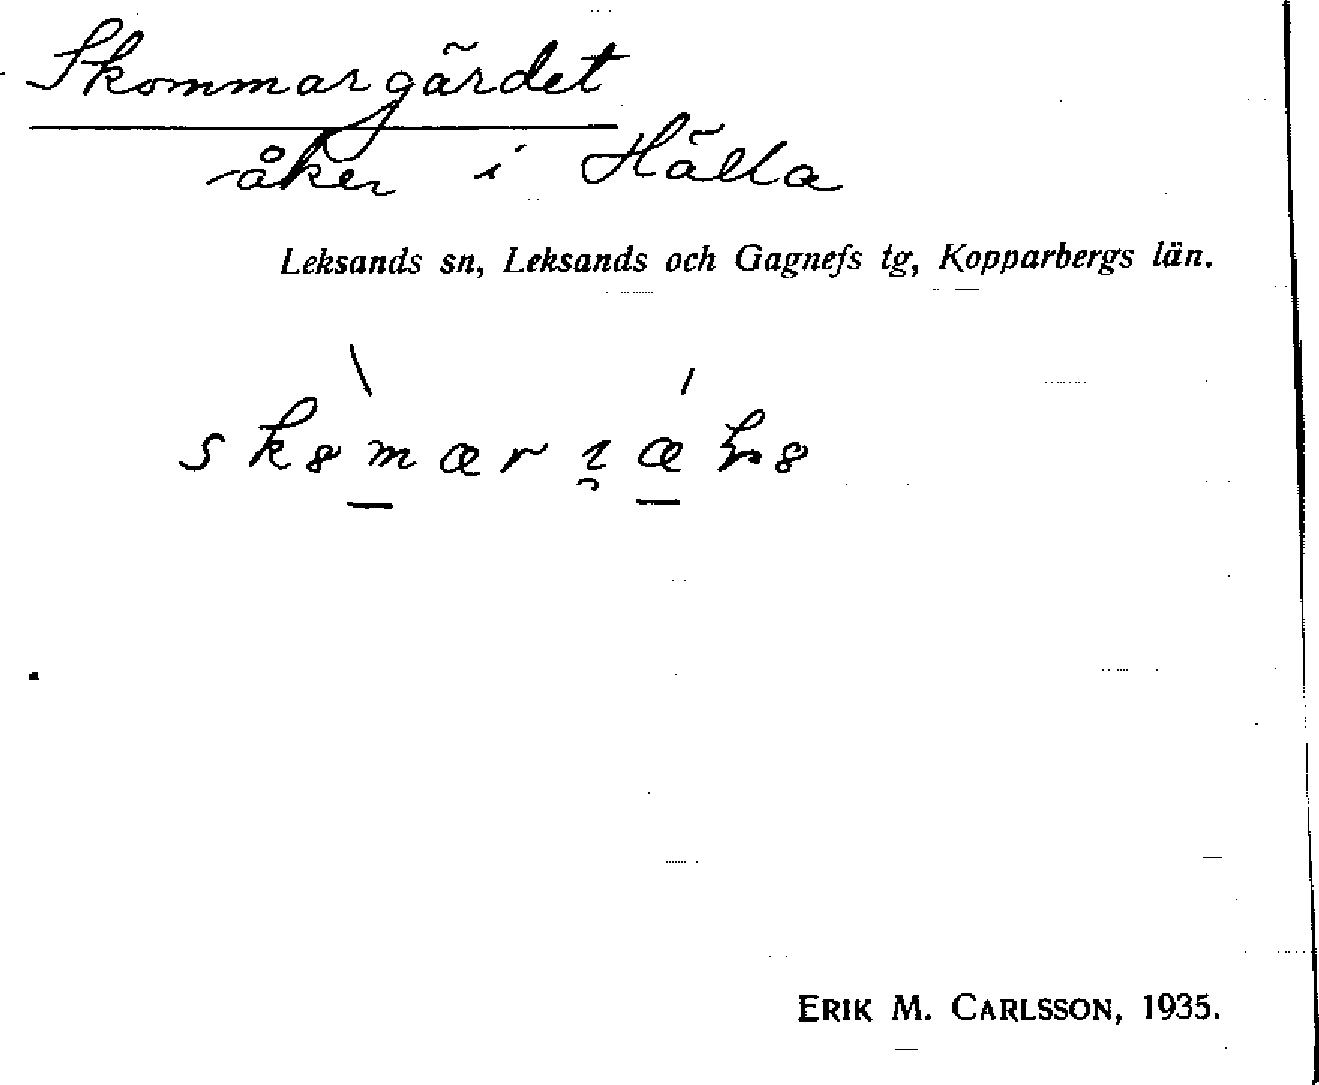 Skommargärdet
åker i Hälla
Leksands sn, Leksands och Gagnefs tg, Kopparbergs län.
ERIK M. CARLSSON, 1935.